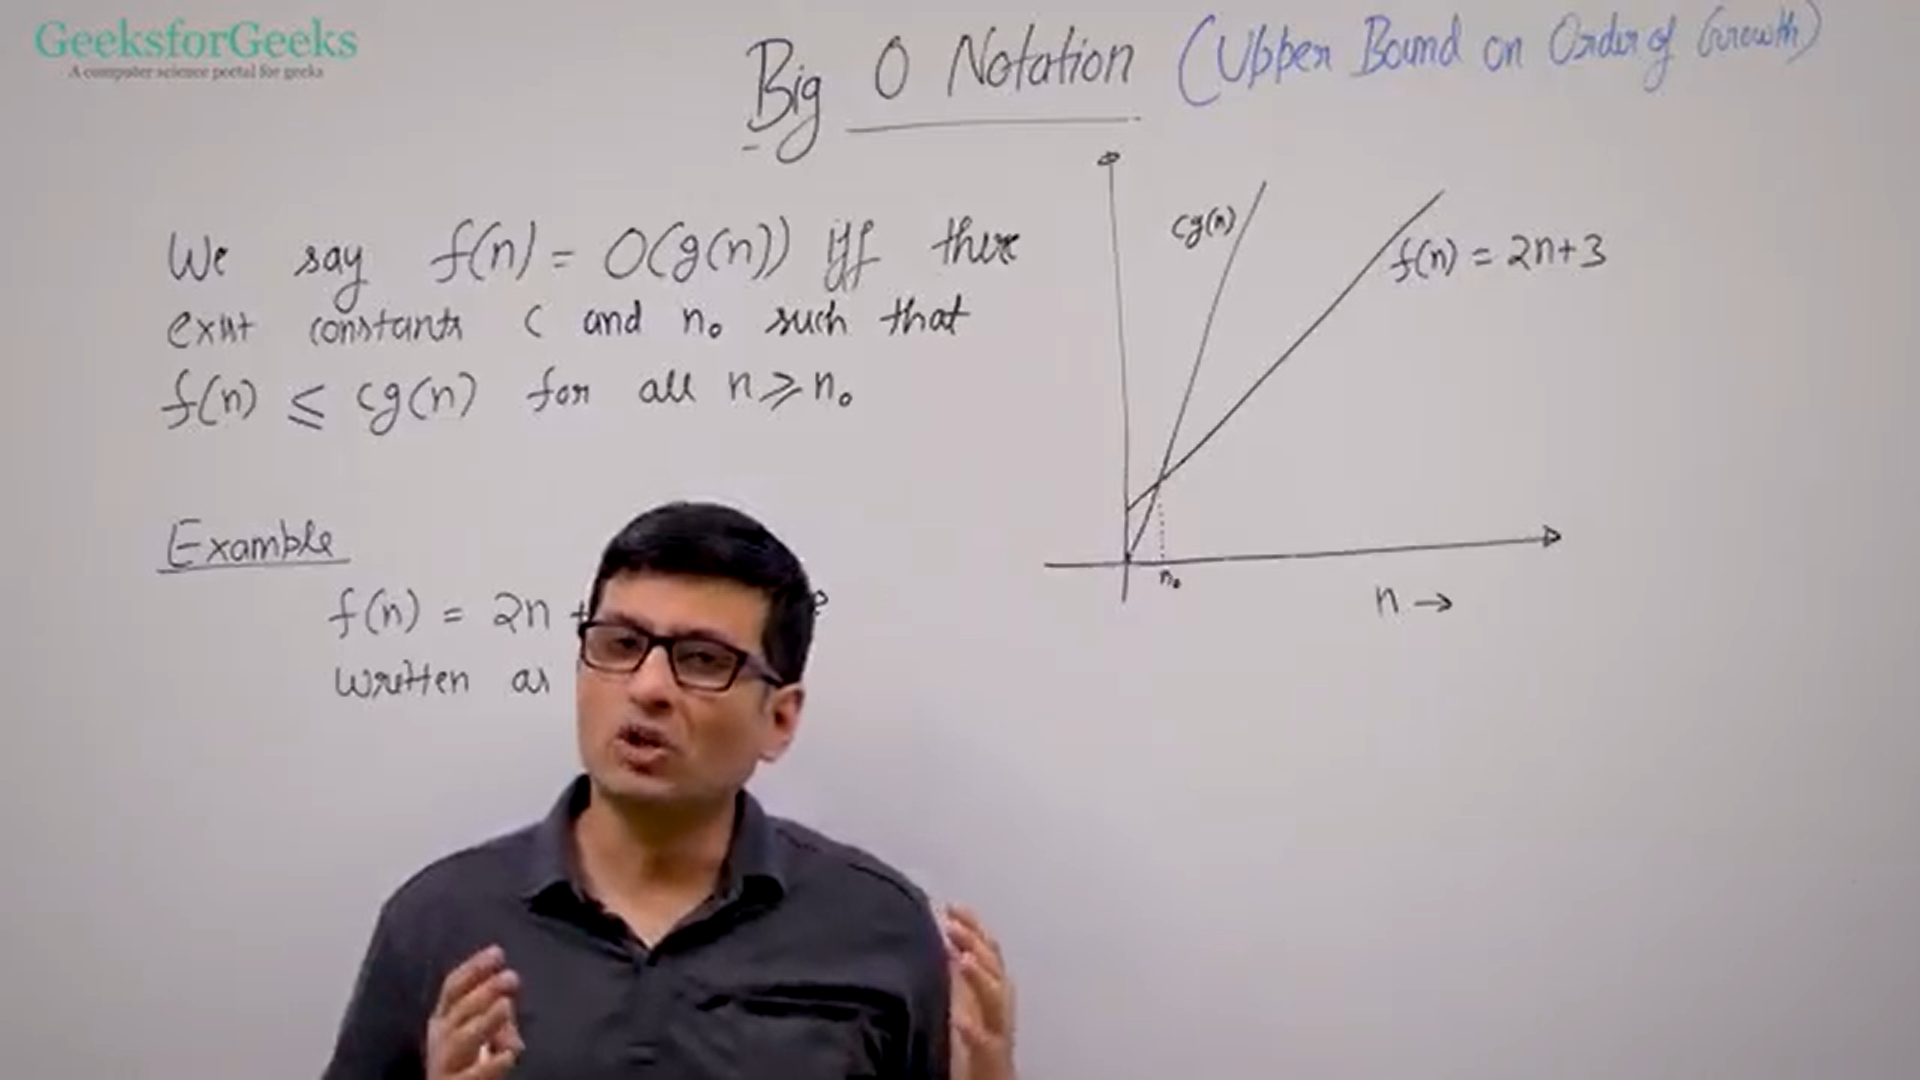 GeeksforGeeks
A computer science portal for geeks
Big O Notation (Upper Bound on Order of Growth)
We say f(n) = O(g(n)) iff there
exist constants c and n₀ such that
f(n) ≤ cg(n) for all n ≥ n₀
Example
f(n) = 2n +
written as
cg(n)
f(n) = 2n+3
n₀
n →